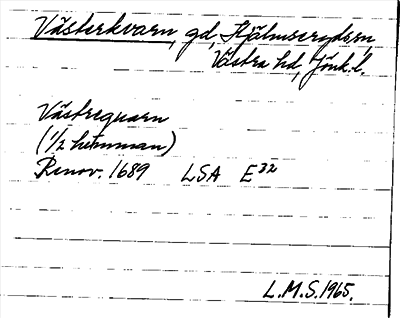 Västerkvarn, gd, Hjälmseryds sn,
Västra hd, Jönk. l.
Västrequarn
(1/2 hemman)
Renov. 1689 LSA E32
L.M.S. 1965.